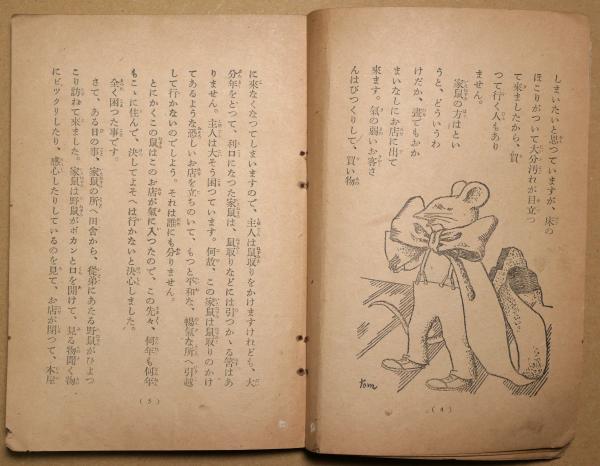 しまいたいと思つていますが、床の
ほこりがついて大分汚れが目立つ
て来ましたから、買
つて行く人もあり
ません。
家鼠の方はとい
うと、どういうわ
けだか、晝でもおか
まいなしにお店に出て
來ます。氣の弱いお客さ
んはびつくりして、買い物
tom
(4)
に來なくなつてしまいますので、主人は鼠取りをかけますけれども、大
分年をとつて、利口になつた家鼠は、鼠取りなどには引つかゝる筈はあ
りません。主人は大そう困つています。何故、この家鼠は鼠取りのかけ
てあるような恐しいお店を立ちのいて、もつと平和な、暢氣な所へ引越
して行かないのでしよう。それは誰にも分りません。
とにかくこの鼠はこのお店が氣に入つたので、この先々、何年も何年
もこゝに住んで、決してよそへは行かないと決心しました。
全く困つた事です。
さて、ある日の事、家鼠の所へ田舎から、從弟にあたる野鼠がひよつ
こり訪ねて來ました。家鼠は野鼠がポカンと口を開けて、見る物聞く物
にビックリしたり、感心したりしているのを見て、お店が閉つて、本屋
(5)